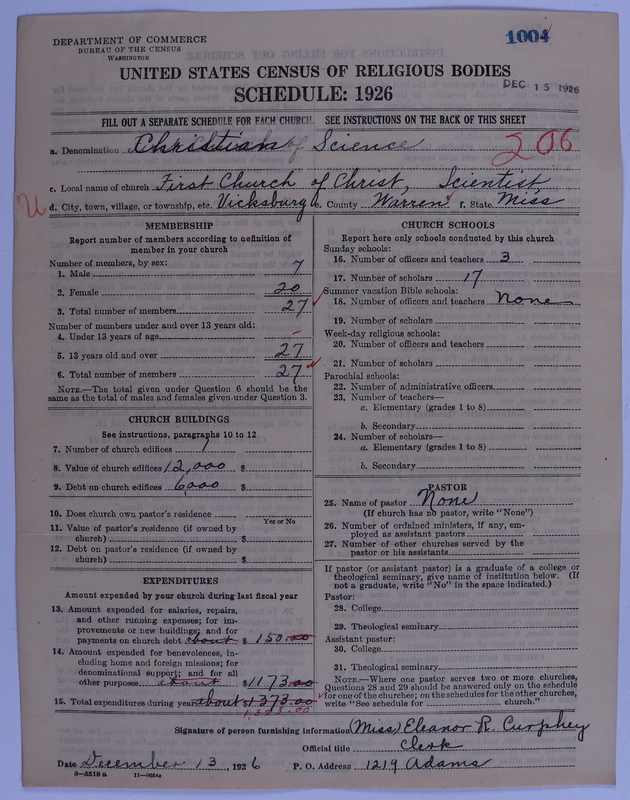 DEPARTMENT OF COMMERCE
BUREAU OF THE CENSUS
WASHINGTON
1004
UNITED STATES CENSUS OF RELIGIOUS BODIES
SCHEDULE: 1926
DEC 15 1926
FILL OUT A SEPARATE SCHEDULE FOR EACH CHURCH. SEE INSTRUCTIONS ON THE BACK OF THIS SHEET
a. Denomination Christian Science
206
c. Local name of church First Church of Christ, Scientist,
d. City, town, village, or township, etc. Vicksburg e. County Warren f. State Miss
MEMBERSHIP
Report number of members according to definition of
member in your church
Number of members, by sex:
1. Male 7
2. Female 20
3. Total number of members 27
Number of members under and over 13 years old:
4. Under 13 years of age -
5. 13 years old and over 27
6. Total number of members 27
NOTE.—The total given under Question 6 should be the
same as the total of males and females given under Question 3.
CHURCH BUILDINGS
See instructions, paragraphs 10 to 12
7. Number of church edifices 1
8. Value of church edifices 12,000 $
9. Debt on church edifices 6000 $
10. Does church own pastor's residence
Yes or No
11. Value of pastor's residence (if owned by
church) $
12. Debt on pastor's residence (if owned by
church) $
EXPENDITURES
Amount expended by your church during last fiscal year
13. Amount expended for salaries, repairs,
and other running expenses; for im-
provements or new buildings; and for
payments on church debt about $ 150.00
14. Amount expended for benevolences, in-
cluding home and foreign missions; for
denominational support; and for all
other purposes about $ 1173.00
15. Total expenditures during year about $ 1373.00
1,323.00
CHURCH SCHOOLS
Report here only schools conducted by this church
Sunday schools:
16. Number of officers and teachers 3
17. Number of scholars 17
Summer vacation Bible schools:
18. Number of officers and teachers None
19. Number of scholars
Week-day religious schools:
20. Number of officers and teachers
21. Number of scholars
Parochial schools:
22. Number of administrative officers
23. Number of teachers—
a. Elementary (grades 1 to 8)
b. Secondary
24. Number of scholars—
a. Elementary (grades 1 to 8)
b. Secondary
PASTOR
25. Name of pastor None
(If church has no pastor, write "None")
26. Number of ordained ministers, if any, em-
ployed as assistant pastors
27. Number of other churches served by the
pastor or his assistants
If pastor (or assistant pastor) is a graduate of a college or
theological seminary, give name of institution below. (If
not a graduate, write "No" in the space indicated.)
Pastor:
28. College
29. Theological seminary
Assistant pastor:
30. College
31. Theological seminary
NOTE.—Where one pastor serves two or more churches,
Questions 28 and 29 should be answered only on the schedule
for one of the churches; on the schedules for the other churches,
write "See schedule for church."
Signature of person furnishing information (Miss) Eleanor R. Curphey
Official title Clerk
Date December 13, 1926 P. O. Address 1219 Adams
8—5518 a 11—9054